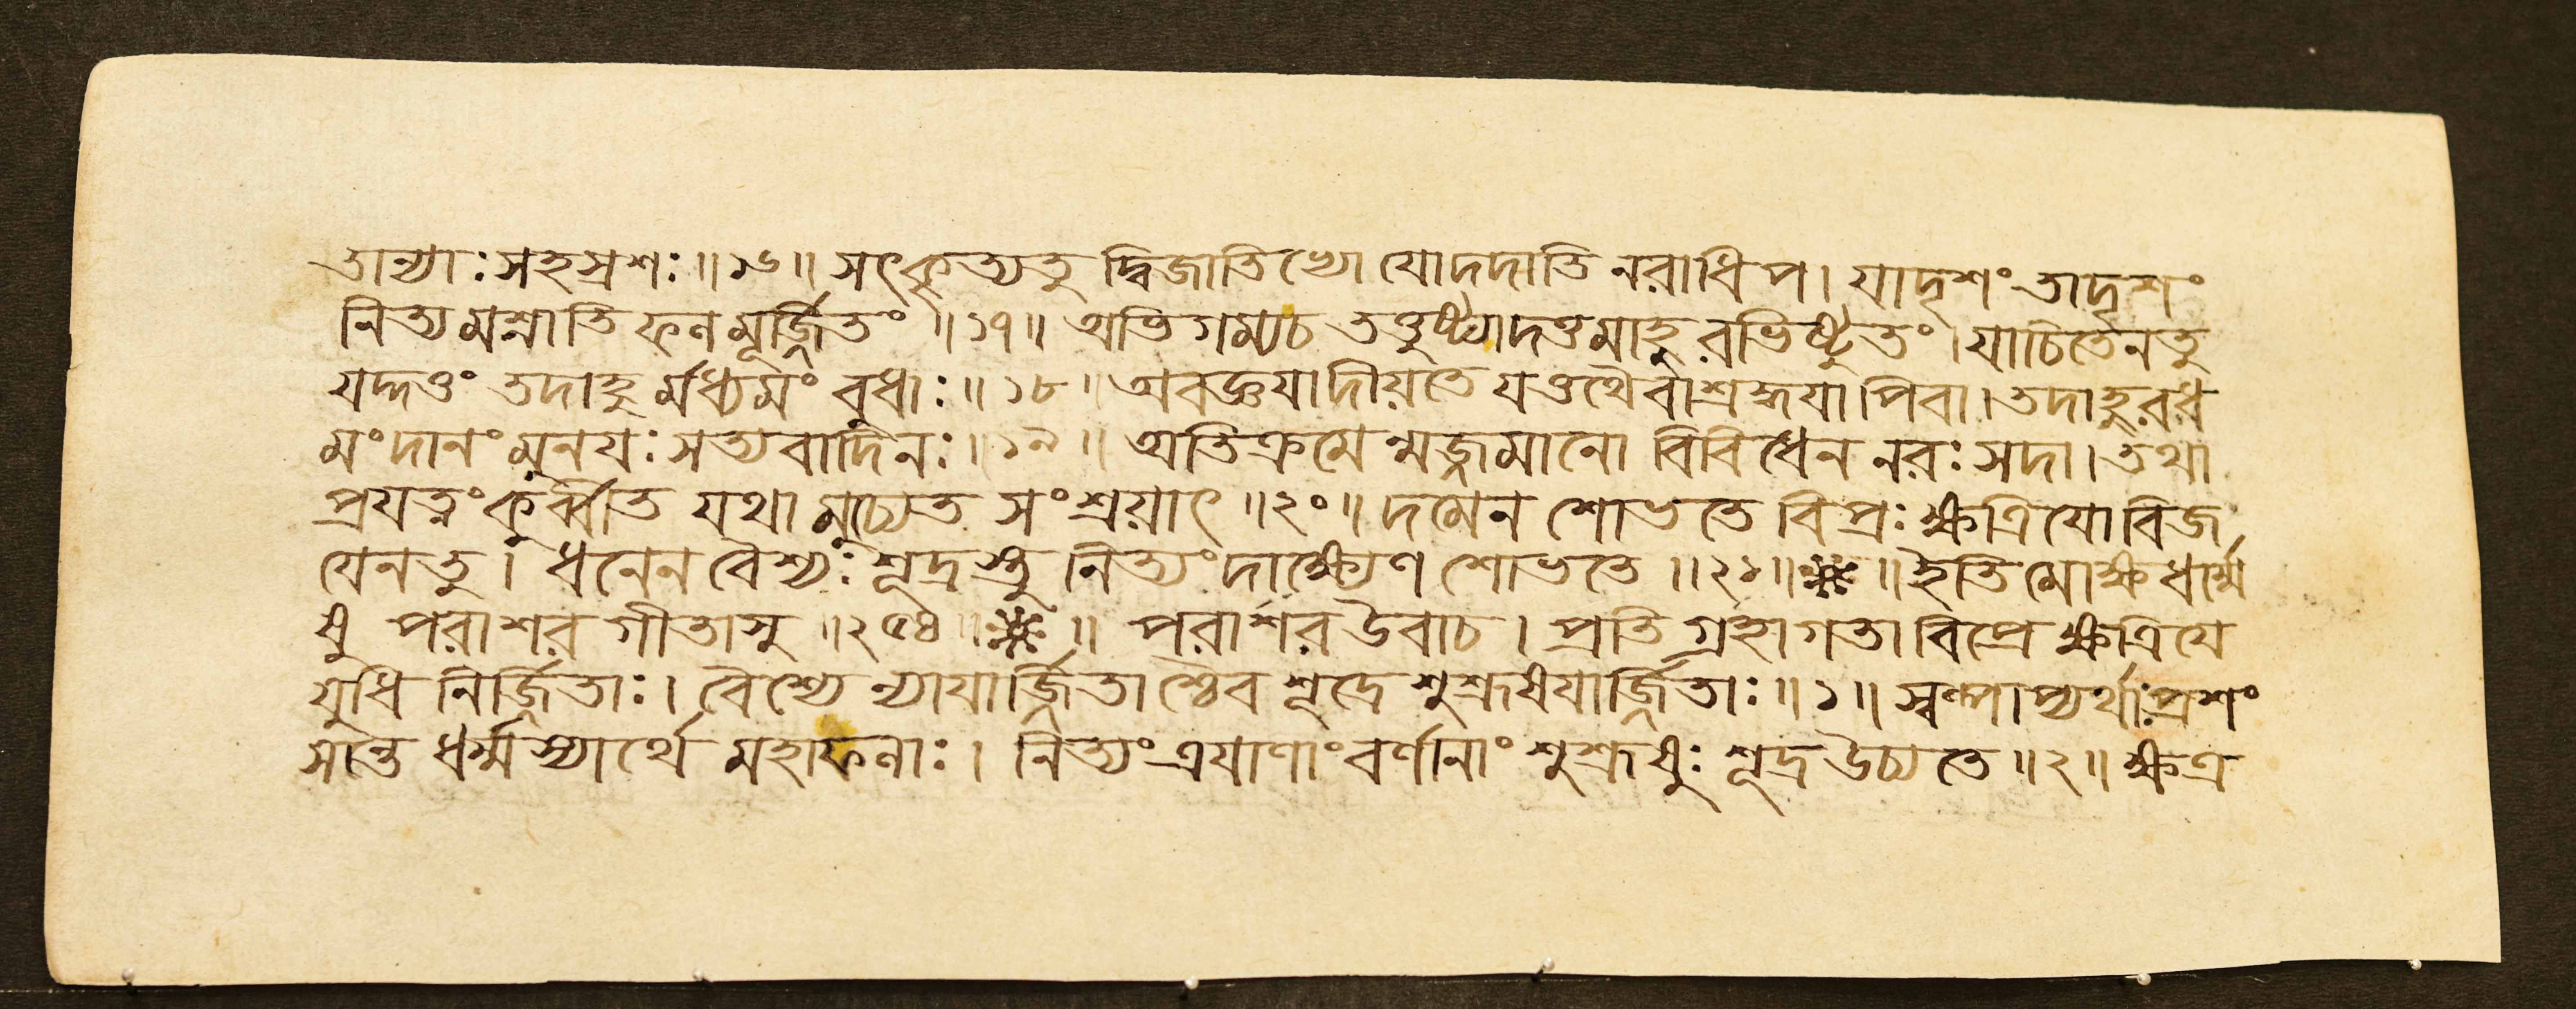 তান্যাঃ সহস্রশঃ ॥ ১৬ ॥ সৎকৃত্যতু দ্বিজাতিভ্যো যোদদাতি নরাধিপ। যাদৃশং তাদৃশং
নিত্যমশ্নাতি ফলমূর্জ্জিতং ॥ ১৭ ॥ অভিগম্যচ তত্তুষ্ট্যাদত্তমাহুরভিষ্টুতং। যাচিতেনতু
যদ্দত্তং তদাহুর্মধ্যমং বুধাঃ ॥ ১৮ ॥ অবজ্ঞযাদীয়তে যত্তথৈবাশ্রদ্ধযাপিবা। তদাহুরধ
মংদানং মুনযঃ সত্যবাদিনঃ ॥ ১৯ ॥ অতিক্রমেন্মজ্জমানো বিবিধেন নরঃ সদা। তথা
প্রযত্নং কুর্ব্বীত যথা মুচ্যেত সংশ্রয়াৎ ॥ ২০ ॥ দমেন শোভতে বিপ্রঃ ক্ষত্রিযোবিজ
যেনতু। ধনেন বৈশ্যঃ শূদ্রস্তু নিত্যংদাক্ষ্যেণ শোভতে ॥ ২১ ॥ ❋ ॥ ইতি মোক্ষধর্ম্মে
ষু পরাশর গীতাসু ॥ ২৫৪ ॥ ❋ ॥ পরাশর উবাচ। প্রতিগ্রহাগতা বিপ্রে ক্ষত্রিযে
যুধি নির্জ্জিতাঃ। বৈশ্যে ন্যাযার্জ্জিতাশ্চৈব শূদ্রে শুশ্রূষযার্জ্জিতাঃ ॥ ১ ॥ স্বল্পাপ্যর্থাঃ প্রশং
সান্ত ধর্ম্মস্যার্থে মহাফলাঃ। নিত্যং ত্রযাণাং বর্ণানাং শুশ্রূষুঃ শূদ্র উচ্যতে ॥ ২ ॥ ক্ষত্র